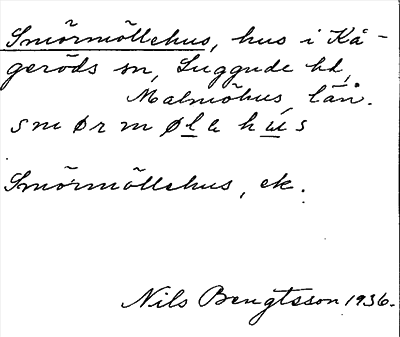 Smörmöllehus, hus i Kå-
geröds sn, Luggude hd,
Malmöhus län.
smørmøle hús
Smörmöllehus, ek.
Nils Bengtsson 1936.